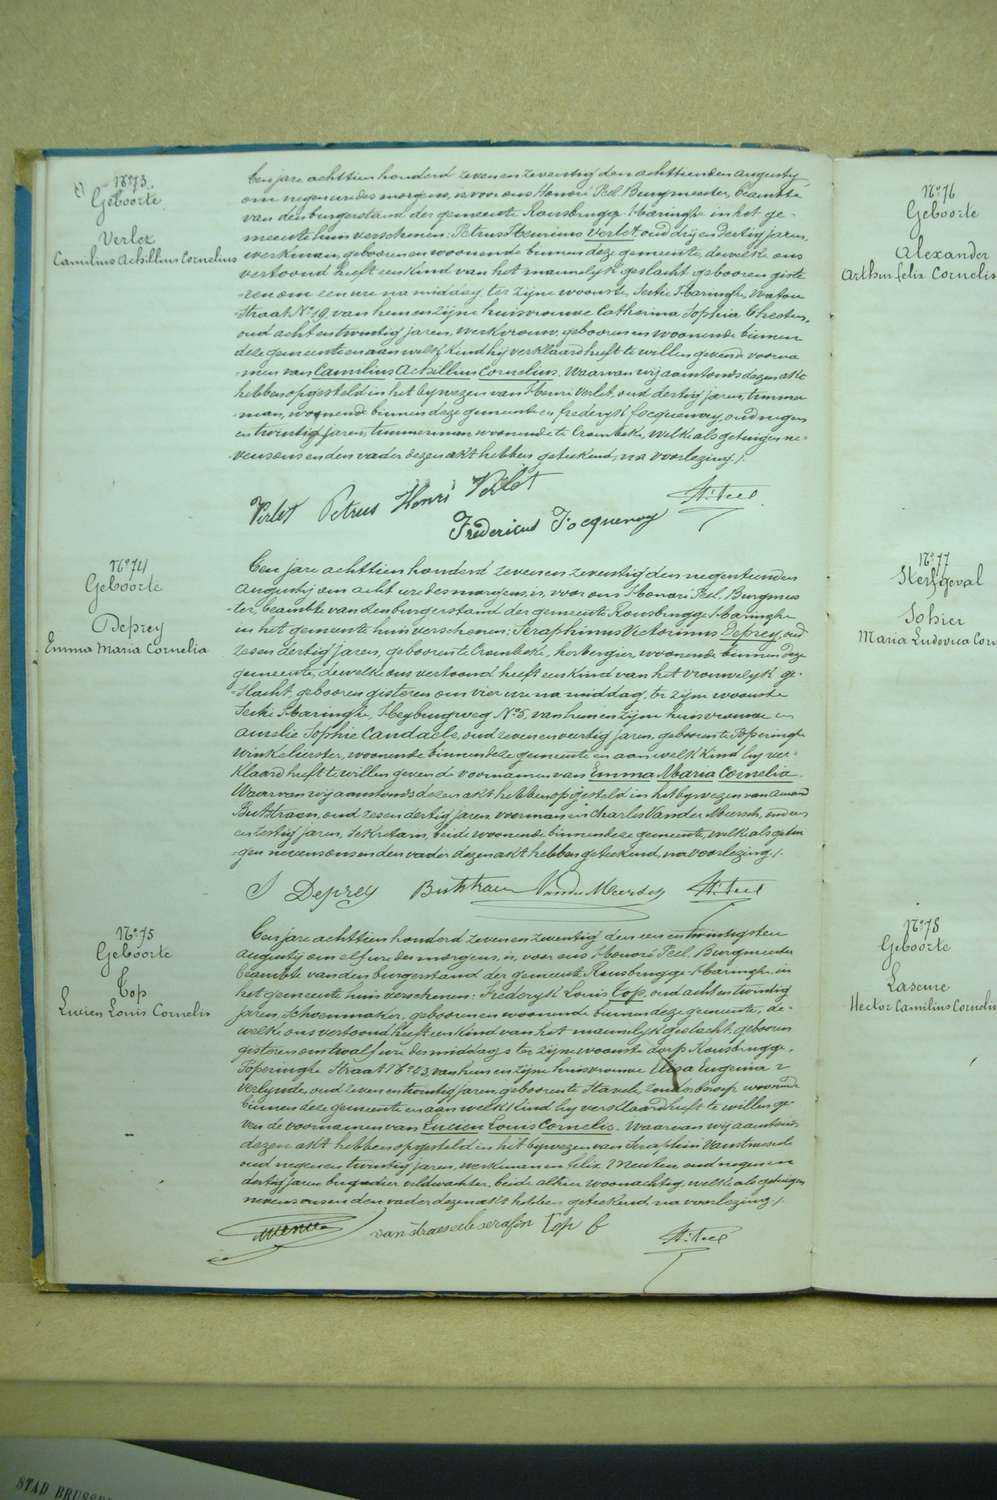 N° 73.
Geboorte
Verlet
Camilius Achillius Cornelius
Een jare achttien honderd zeven en zeventig den achttienden augusty
om negen ure des morgens, is voor ons Honoré Peel, Burgmeester, beambte
van den burgerstand der gemeente Rousbrugge-Haringhe in het ge-
meente huis verschenen: Petrus Henricus Verlet oud drij en dertig jaren,
werkman, geboren en woonende binnen deze gemeente, dewelke ons
vertoond heeft een kind van het mannelijk geslacht geboren giste-
ren om een ure na middag, ter zijne woonste, Sectie Haringhe, Watou
Straat N° 19, van hem en zijne huisvrouwe Catherina Sophia
oud acht en twintig jaren, werkvrouw, geboren en woonende binnen
deze gemeente en aan welk kind hij verklaard heeft te willen geven de voorna-
men van Camilius Achillius Cornelius. Waarvan wij aanstonds dezen akt
hebben opgesteld in het bywezen van Henri Verlet, oud dertig jaren, timmer-
man, woonende binnen deze gemeente en frederyk Jocquenoy, oud negen
en twintig jaren, timmerman woonende te Crombeke, welk als getuigen ne-
vens ons en den vader dezen akt hebben geteekend, na voorlezing./.
Verlet Petrus Henri Verlet
H: Peel
Fredericus Jocquenoy
N° 74
Geboorte
Deprey
Emma Maria Cornelia
Een jare achttien honderd zeven en zeventig den negentienden
augusty om acht ure des morgens, is voor ons Honoré Peel, Burgmees-
ter, beambte van den burgerstand der gemeente Rousbrugge-Haringhe
in het gemeente huis verschenen: Seraphinus Victorinus Deprey, oud
zes en dertig jaren, geboren te Crombeke, herbergier, woonende binnen deze
gemeente, dewelke ons vertoond heeft een kind van het vrouwelijk ge-
slacht, geboren gisteren om vier ure na middag, ter zijne woonste
Sectie Haringhe, Heyburgweg N° 5, van hem en zijne huisvrouwe
Amelie Sophie Candaele, oud zeven en veertig jaren, geboren te Poperinghe
winkelierster, woonende binnen deze gemeente en aan welk kind hij ver-
klaard heeft te willen geven de voornamen van Emma Maria Cornelia.
Waarvan wij aanstonds dezen akt hebben opgesteld in het bywezen van Amand
Butstraen, oud zes en dertig jaren, voerman en Charles Van der Meersch, oud
en zestig jaren, Sekretaris, beide woonende binnen deze gemeente, welk als getui-
gen nevens ons en den vader dezen akt hebben geteekend, na voorlezing./.
S Deprey Butstraen Vander Meersch H: Peel
N° 75
Geboorte
Top
Lucien Louis Cornelis
Een jare achttien honderd zeven en zeventig den een en twintigsten
augusty om elf ure des morgens, is voor ons Honoré Peel, Burgmeester
beambte van den burgerstand der gemeente Rousbrugge-Haringhe, in
het gemeente huis verschenen: Frederyk Louis Top, oud acht en twintig
jaren, Schoenmaker, geboren en woonende binnen deze gemeente, de-
welke ons vertoond heeft een kind van het mannelijk geslacht, geboren
gisteren om twaalf ure des middags ter zijne woonste dorp Rousbrugge,
Poperinghe Straat N° 23, van hem en zijne huisvrouwe Elisa Eugenia
Verlynde, oud zeven en twintig jaren, geboren te Stavele, zonder beroep, woonende
binnen deze gemeente en aan welk kind hij verklaard heeft te willen ge-
ven de voornamen van Lucien Louis Cornelis. Waarvan wij aanstonds
dezen akt hebben opgesteld in het bywezen van Seraphin Vanstraeseele
oud negen en twintig jaren, werkman en felix Meneu oud negen en
dertig jaren brigadier veldwachter, beide alhier woonachtig, welk als getuigen
nevens ons en den vader dezen akt hebben geteekend, na voorlezing./.
vanstraeseele serafin Top f H: Peel
N° 76
Geboorte
Alexander
Arthur felix Cornelis
N° 77
Sterfgeval
Sohier
Maria Ludovica Cor
N° 78
Geboorte
Lascure
Hector Camilius Corneli
STAD BRUSSE